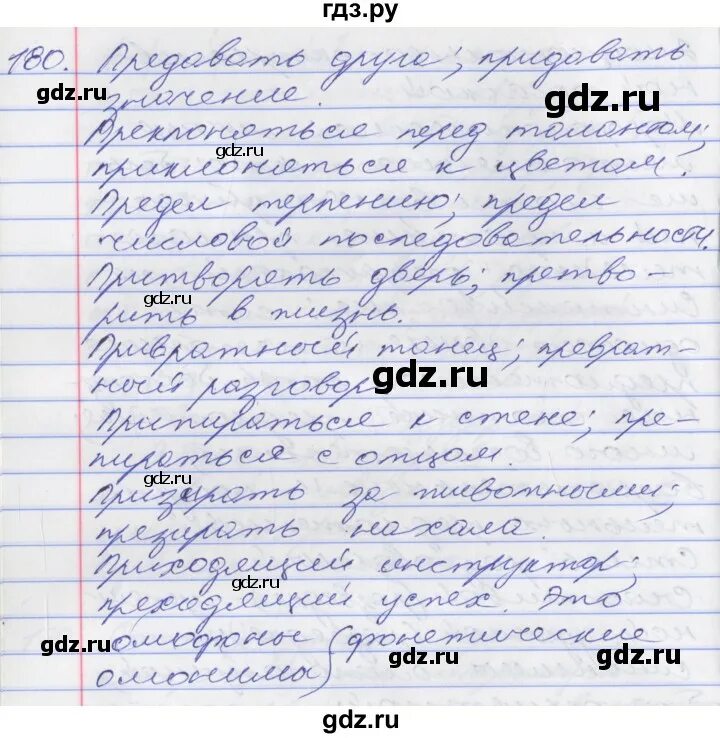 гдз.ру
180. Предавать друга; придавать
значение. gdz.ru
gdz.ru
Преклоняться перед талантом;
приклоняться к цветам.
gdz.ru
Предел терпению; предел
числовой последовательности.
Притворять дверь; претво-
gdz.ru
рить в жизнь.
Привратный танец; преврат-
ный разговор gdz.ru
Припираться к стене; пре-
gdz.ru
пираться с отцом.
Призирать за животными;
gdz.ru
презирать нахала.
Приходящий инструктор;
gdz.ru
преходящий успех. Это
омофоны (фонетические
gdz.ru gdz.ru gdz.ru
омонимы)
gdz.ru